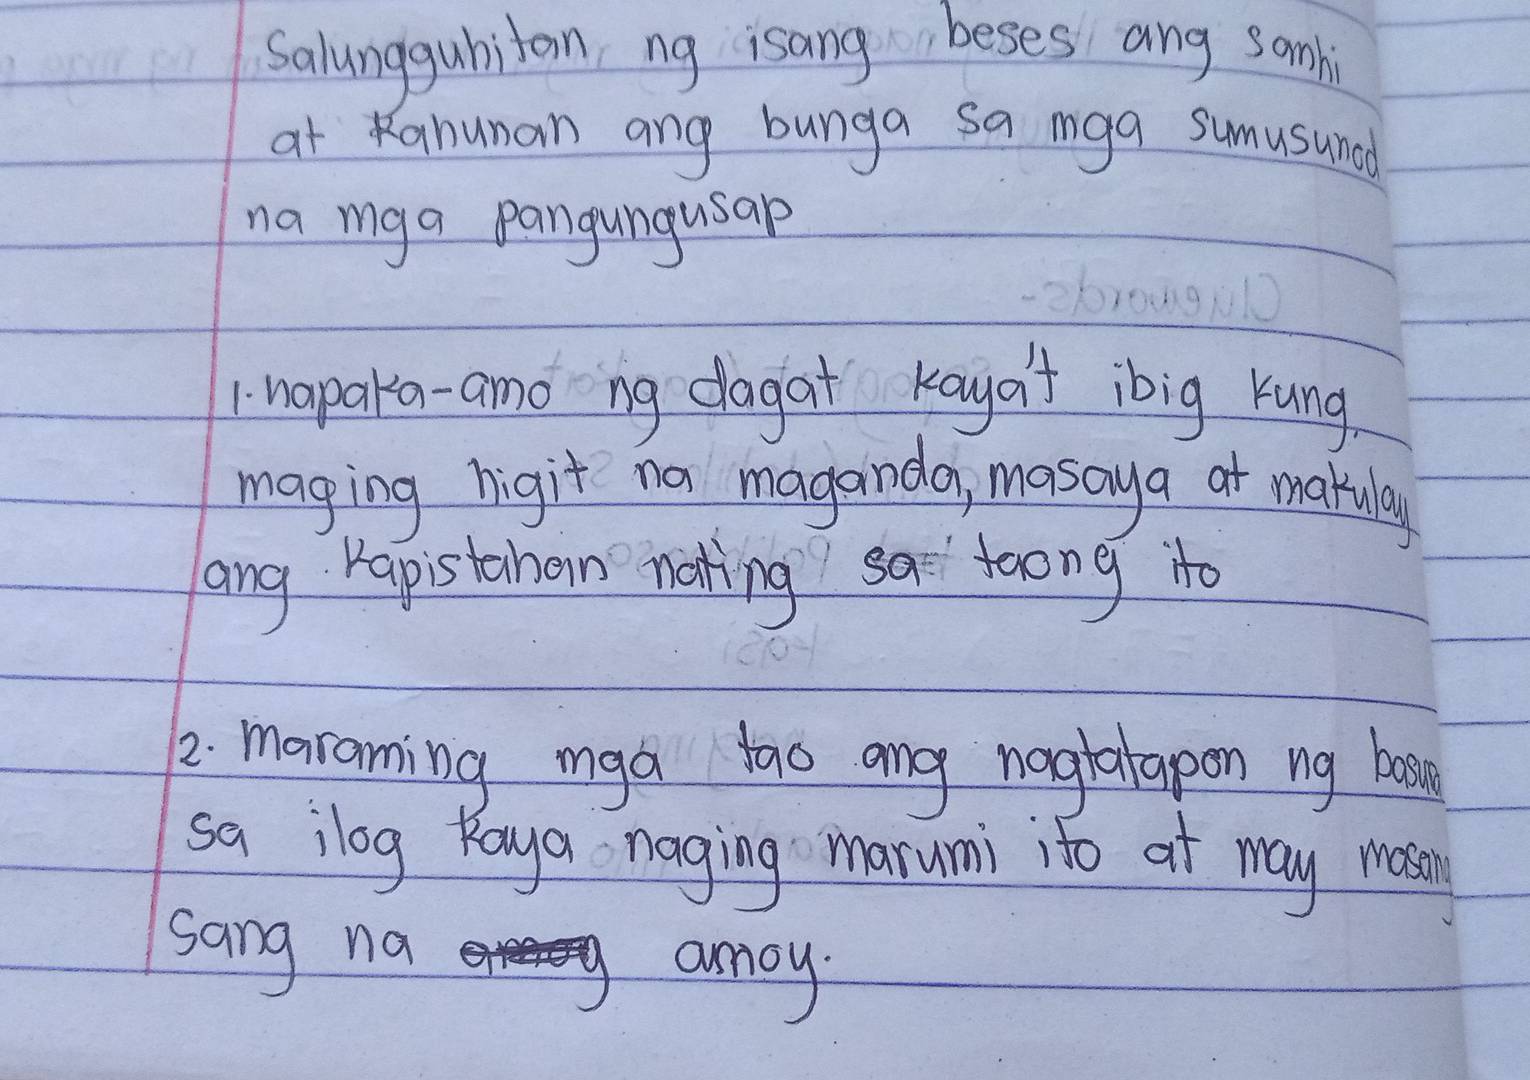 Salungguhitan ng isang beses ang sanhi
at Kahunan ang bunga sa mga sumusunod
na mga pangungusap
1. napaka-amo ng dagat kaya't ibig kung
maging higit na maganda, masaya at makulay
ang kapistahan nating sa taong ito
2. maraming mga tao ang nagtatapon ng basura
sa ilog kaya naging marumi ito at may masang
sang na amoy.